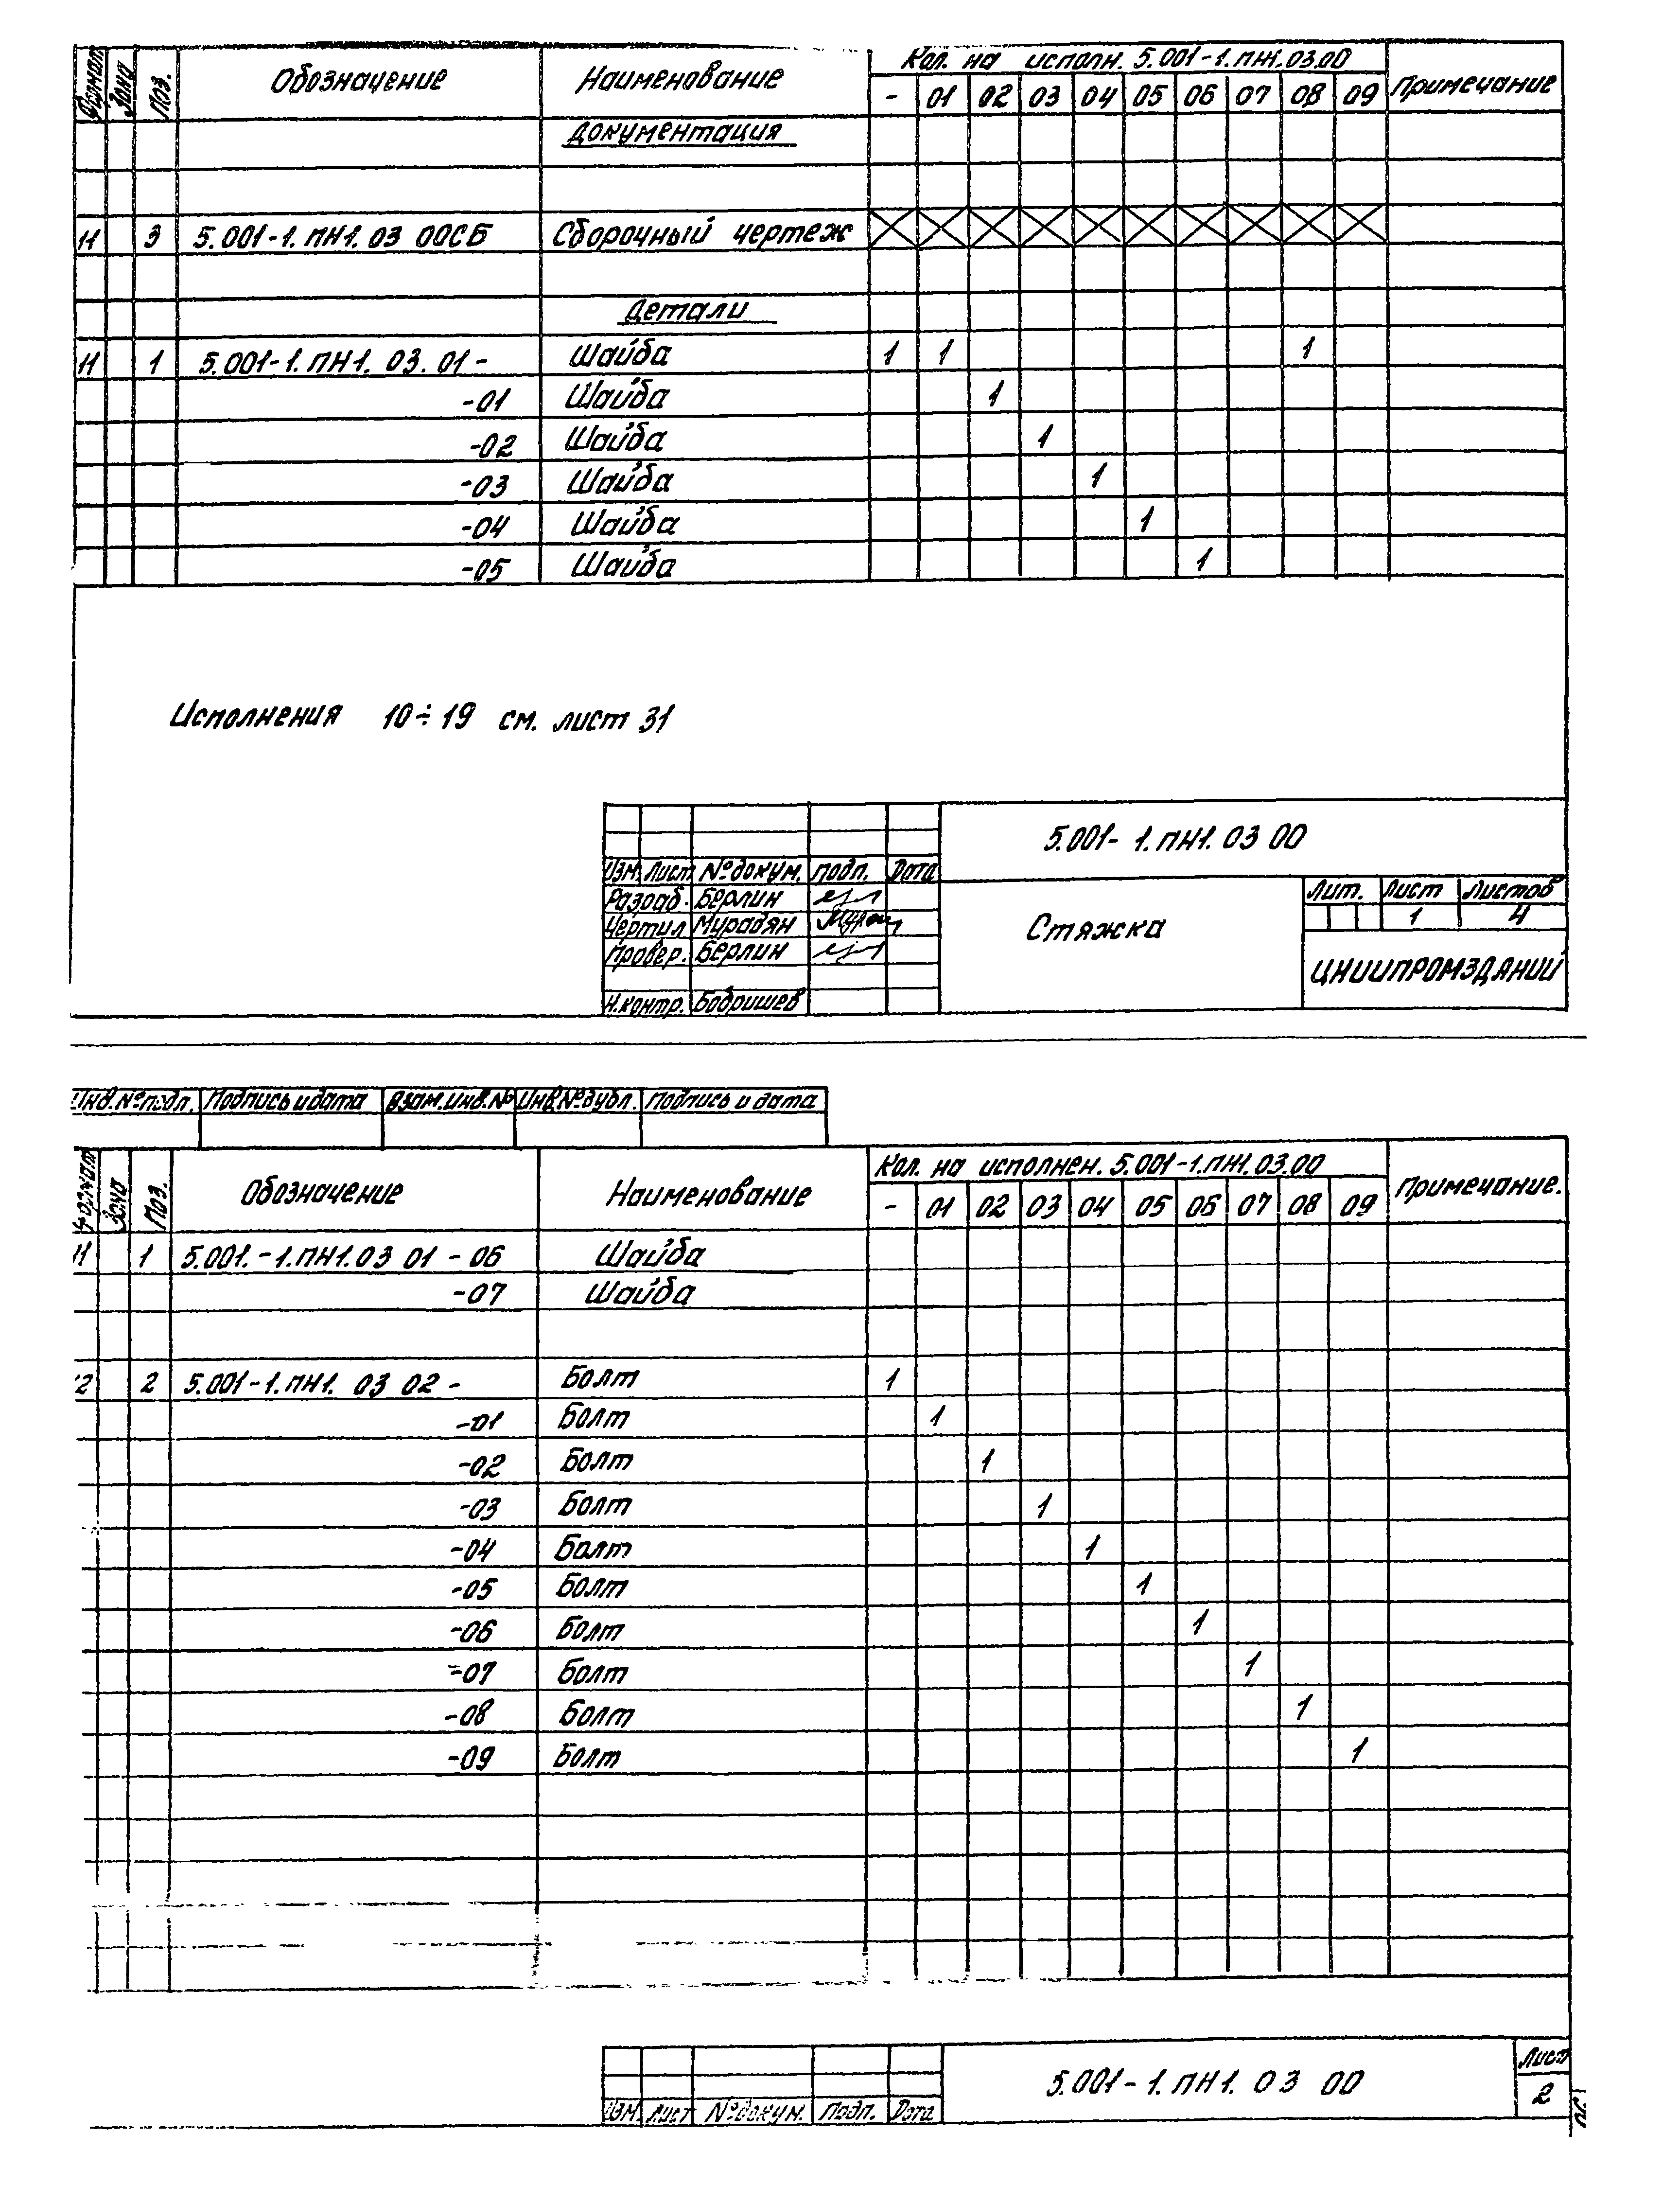 Формат Зона Поз. Обозначение Наименование Кол. на исполн. 5.001-1.ПН1.03.00 Примечание
- 01 02 03 04 05 06 07 08 09
Документация
11 3 5.001-1.ПН1.03 00СБ Сборочный чертеж
Детали
11 1 5.001-1.ПН1.03.01- Шайба 1 1 1
-01 Шайба 1
-02 Шайба 1
-03 Шайба 1
-04 Шайба 1
-05 Шайба 1
Исполнения 10÷19 см. лист 31
5.001-1.ПН1.03 00
Изм. Лист №докум. Подп. Дата
Разраб. Берлин
Чертил Мурадян
Провер. Берлин
Н.контр. Бобришев
Стяжка
Лит. Лист Листов
1 4
ЦНИИПРОМЗДАНИЙ
Инв.№подл. Подпись и дата Взам.инв.№ Инв.№дубл. Подпись и дата
Формат Зона Поз. Обозначение Наименование Кол. на исполнен. 5.001-1.ПН1.03.00 Примечание.
- 01 02 03 04 05 06 07 08 09
11 1 5.001.-1.ПН1.03 01-06 Шайба
-07 Шайба
12 2 5.001-1.ПН1.03 02- Болт 1
-01 Болт 1
-02 Болт 1
-03 Болт 1
-04 Болт 1
-05 Болт 1
-06 Болт 1
-07 Болт 1
-08 Болт 1
-09 Болт 1
5.001-1.ПН1.03 00
Лист
2
Изм. Лист №докум. Подп. Дата